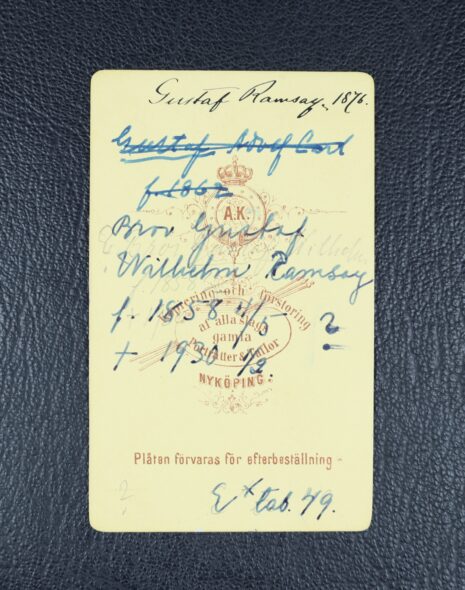 Gustaf Ramsay. 1876.
Gustaf Adolf Carl
f. 1867
A.K.
Bror Gustaf
Wilhelm Ramsay
f. 1858 4/5 ?
+ 1930 1/2.
Kopiering och förstoring
af alla slags
gamla
Porträtter & Taflor
NYKÖPING.
Plåten förvaras för efterbeställning
? Ex tab. 49.